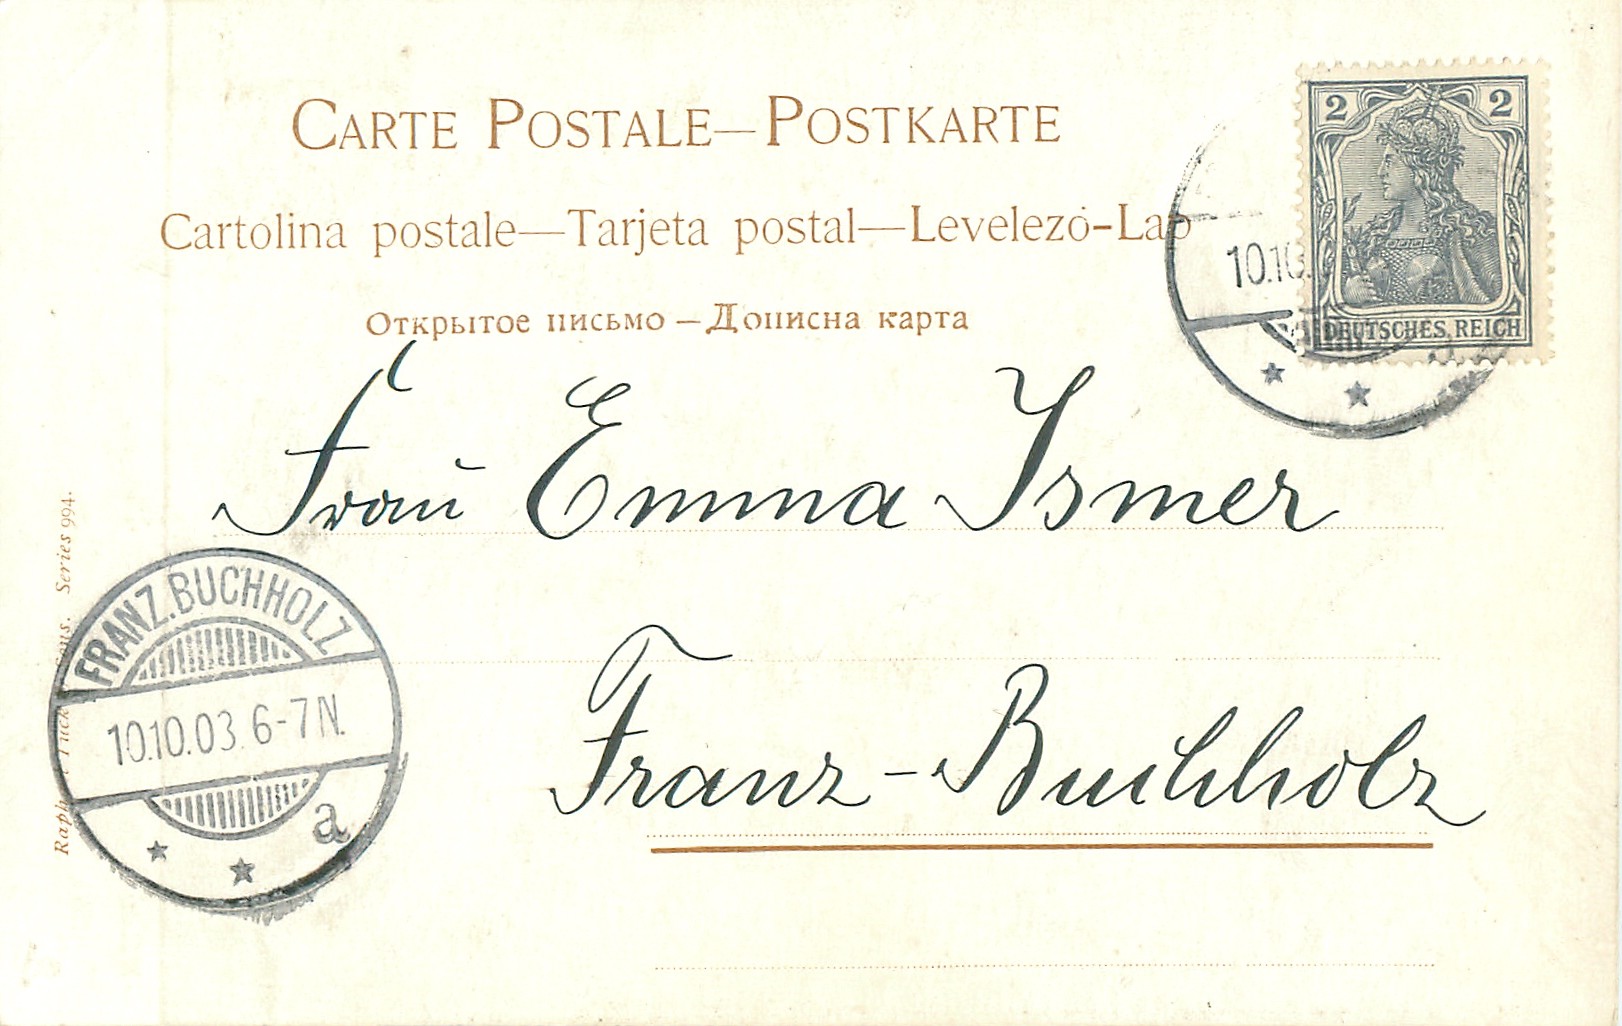 CARTE POSTALE—POSTKARTE
Cartolina postale—Tarjeta postal—Levelezó-Lap
Открытое письмо — Дописна карта
2 2
DEUTSCHES REICH
10.10.
Frau Emma Ismer
Franz-Buchholz
FRANZ.BUCHHOLZ
10.10.03. 6-7N.
a
Series 994.